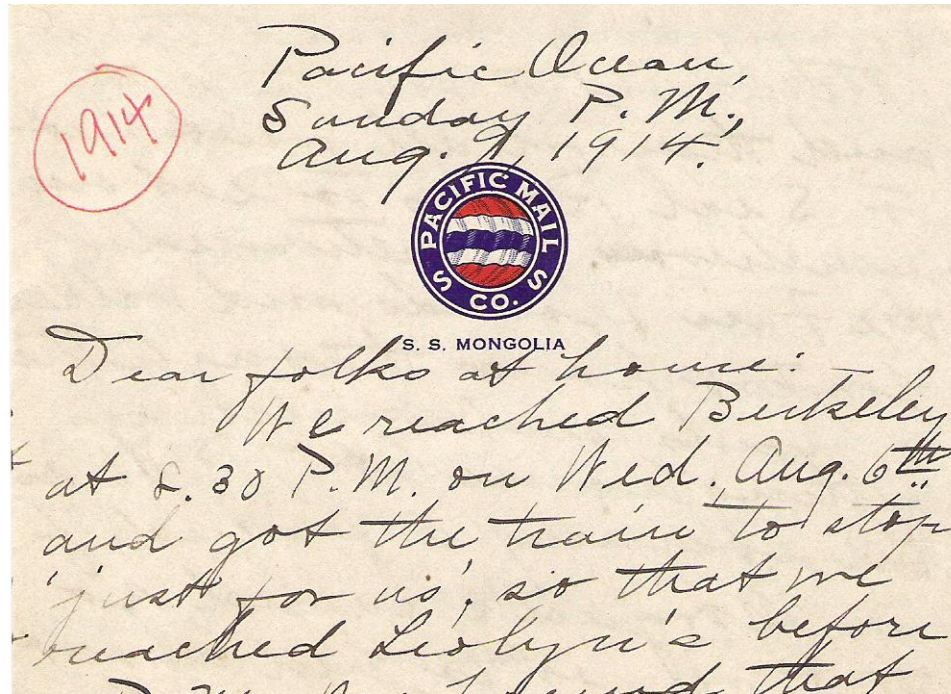 Pacific Ocean,
Sunday P.M.,
Aug. 9, 1914.
1914
PACIFIC MAIL
S S CO.
S. S. MONGOLIA
Dear folks at home:-
We reached Berkeley
at 8.30 P.M. on Wed. Aug. 6th
and got the train to stop
'just for us', so that we
reached before
P.M. that